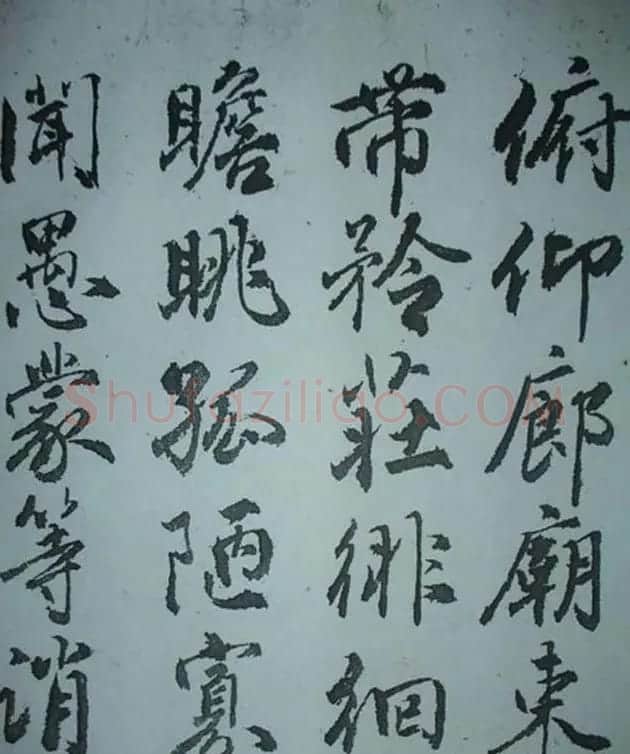 俯仰廊廟束
帶矜莊徘徊
瞻眺孤陋寡
聞愚蒙等誚
Shufaziliao.COM